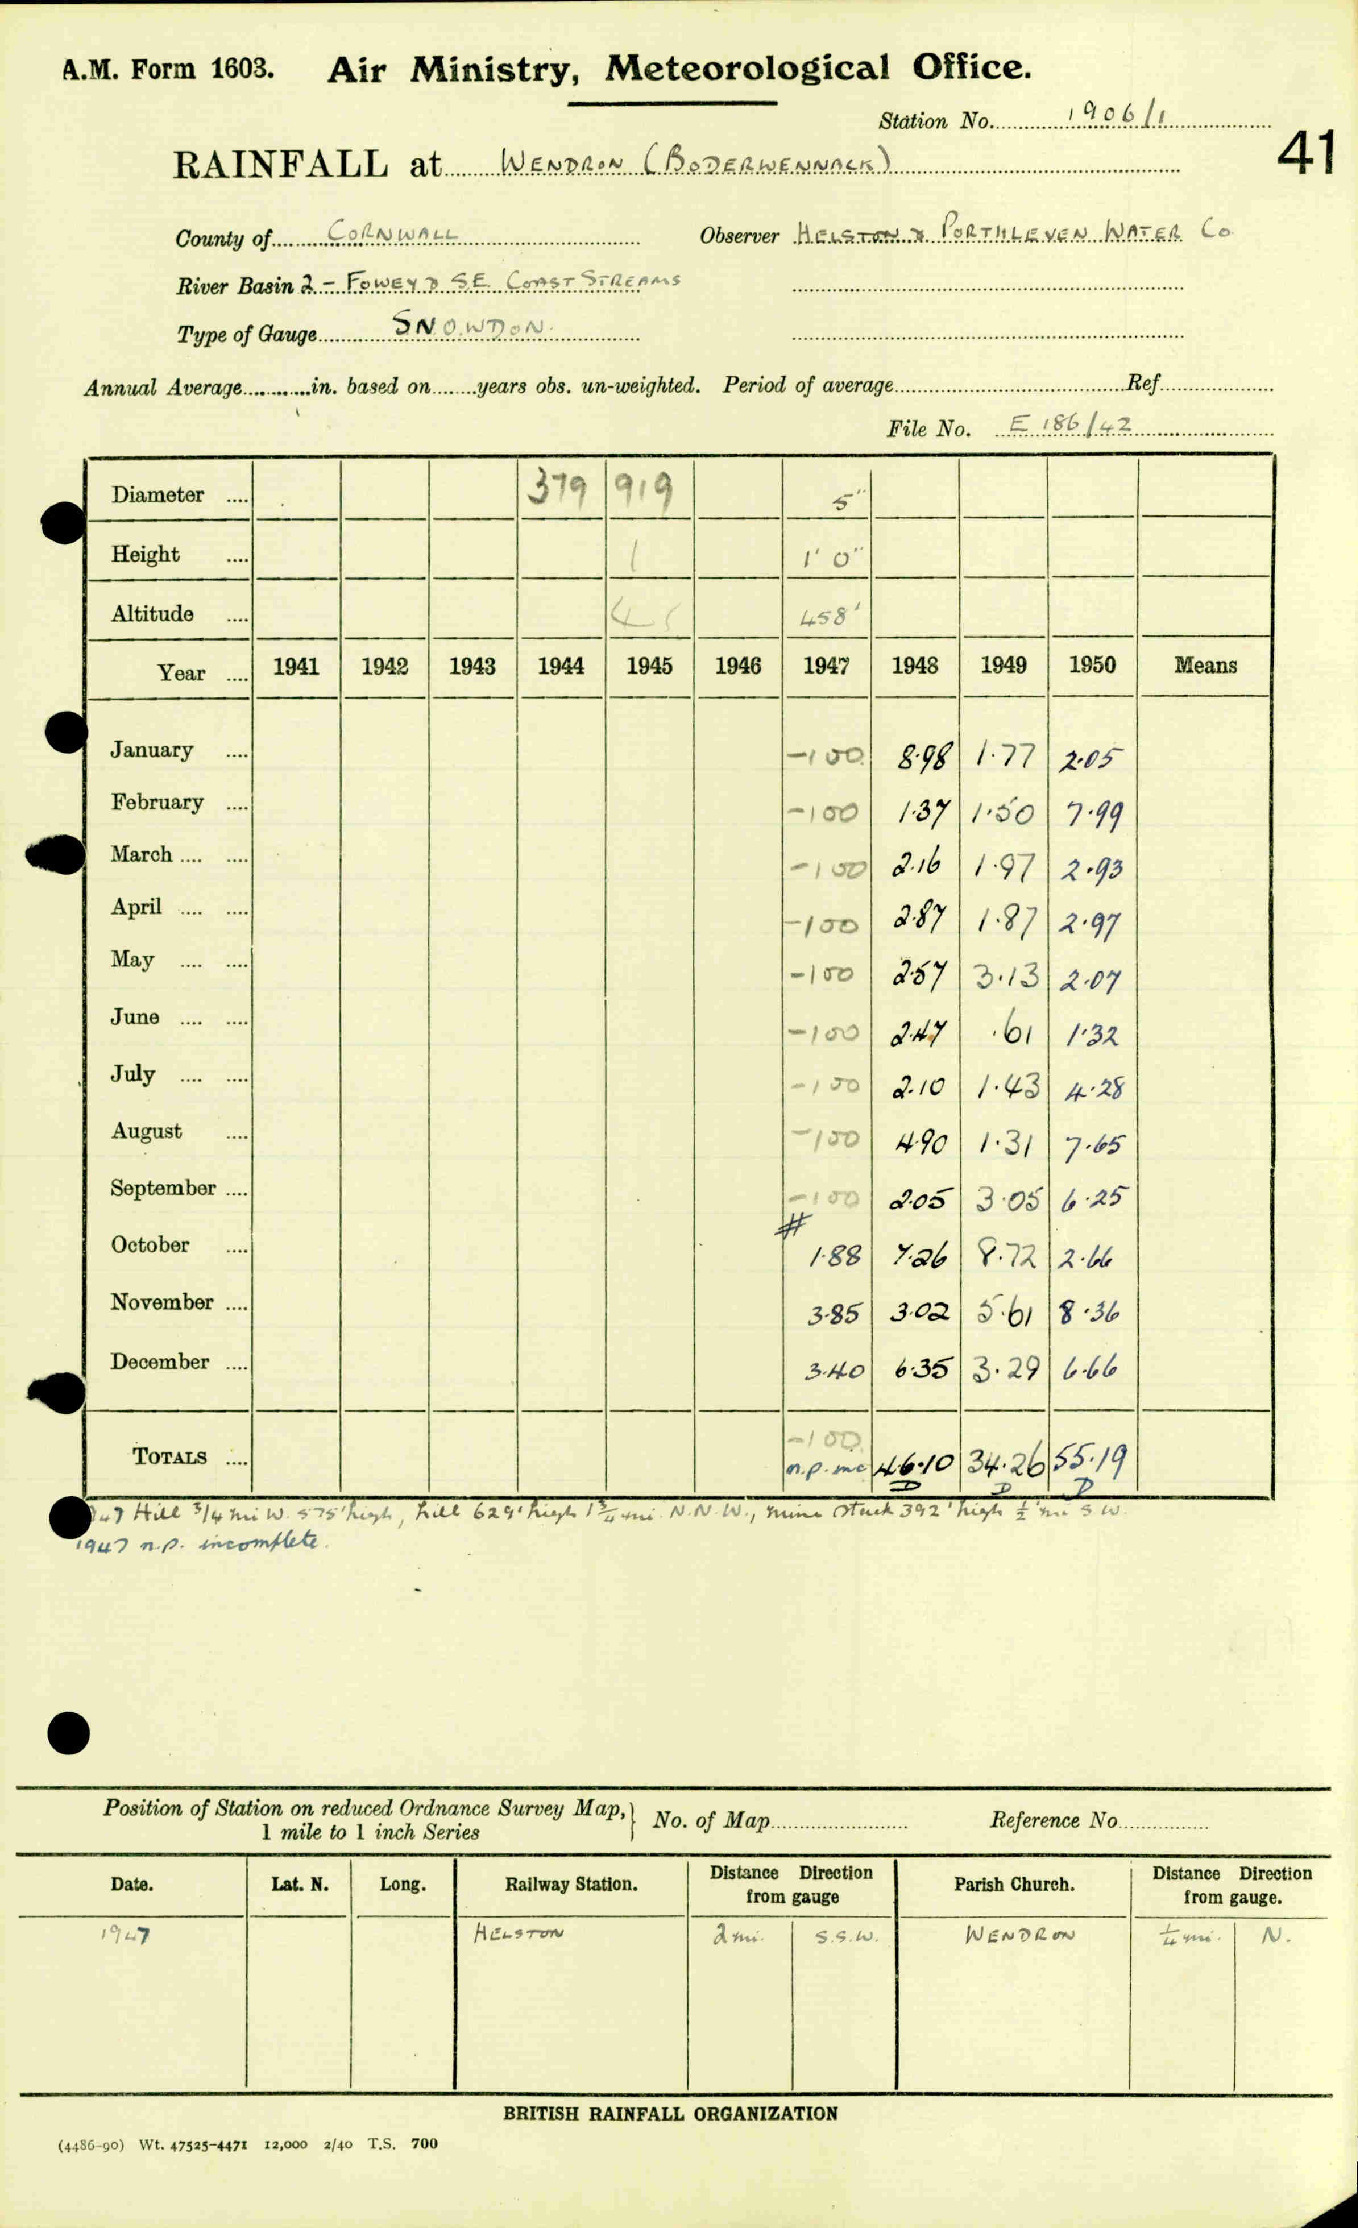 A.M. Form 1603. Air Ministry, Meteorological Office.
Station No. 1906/1
41
RAINFALL at WENDRON (BODERWENNACK)
County of CORNWALL Observer HELSTON & PORTHLEVEN WATER Co
River Basin 2 - FOWEY & SE COAST STREAMS
Type of Gauge SNOWDON.
Annual Average in. based on years obs. un-weighted. Period of average Ref.
File No. E 186/42
Diameter .... 379 919 5"
Height .... 1 1' 0"
Altitude .... 458'
Year .... 1941 1942 1943 1944 1945 1946 1947 1948 1949 1950 Means
January .... -100 8.98 1.77 2.05
February .... -100 1.37 1.50 7.99
March .... .... -100 2.16 1.97 2.93
April .... .... -100 2.87 1.87 2.97
May .... .... -100 2.57 3.13 2.07
June .... .... -100 2.47 .61 1.32
July .... .... -100 2.10 1.43 4.28
August .... -100 4.90 1.31 7.65
September .... -100 2.05 3.05 6.25
#
October .... 1.88 7.26 8.72 2.66
November .... 3.85 3.02 5.61 8.36
December .... 3.40 6.35 3.29 6.66
-100
TOTALS .... n.p. inc 46.10 34.26 55.19
D D D
1947 Hill 3/4 mi W. 575' high, hill 629' high 1 3/4 mi. N.N.W., mine stack 392' high 1/2 mi S W.
1947 n.p. incomplete.
Position of Station on reduced Ordnance Survey Map, 1 mile to 1 inch Series } No. of Map Reference No.
Date. Lat. N. Long. Railway Station. Distance Direction from gauge Parish Church. Distance Direction from gauge.
1947 HELSTON 2 mi. S.S.W. WENDRON 1/4 mi. N.
BRITISH RAINFALL ORGANIZATION
(4486-90) Wt. 47525-4471 12,000 2/40 T.S. 700